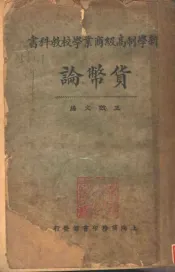 新學制高級商業學校教科書
貨幣論
王效文
上海商務印書館發行